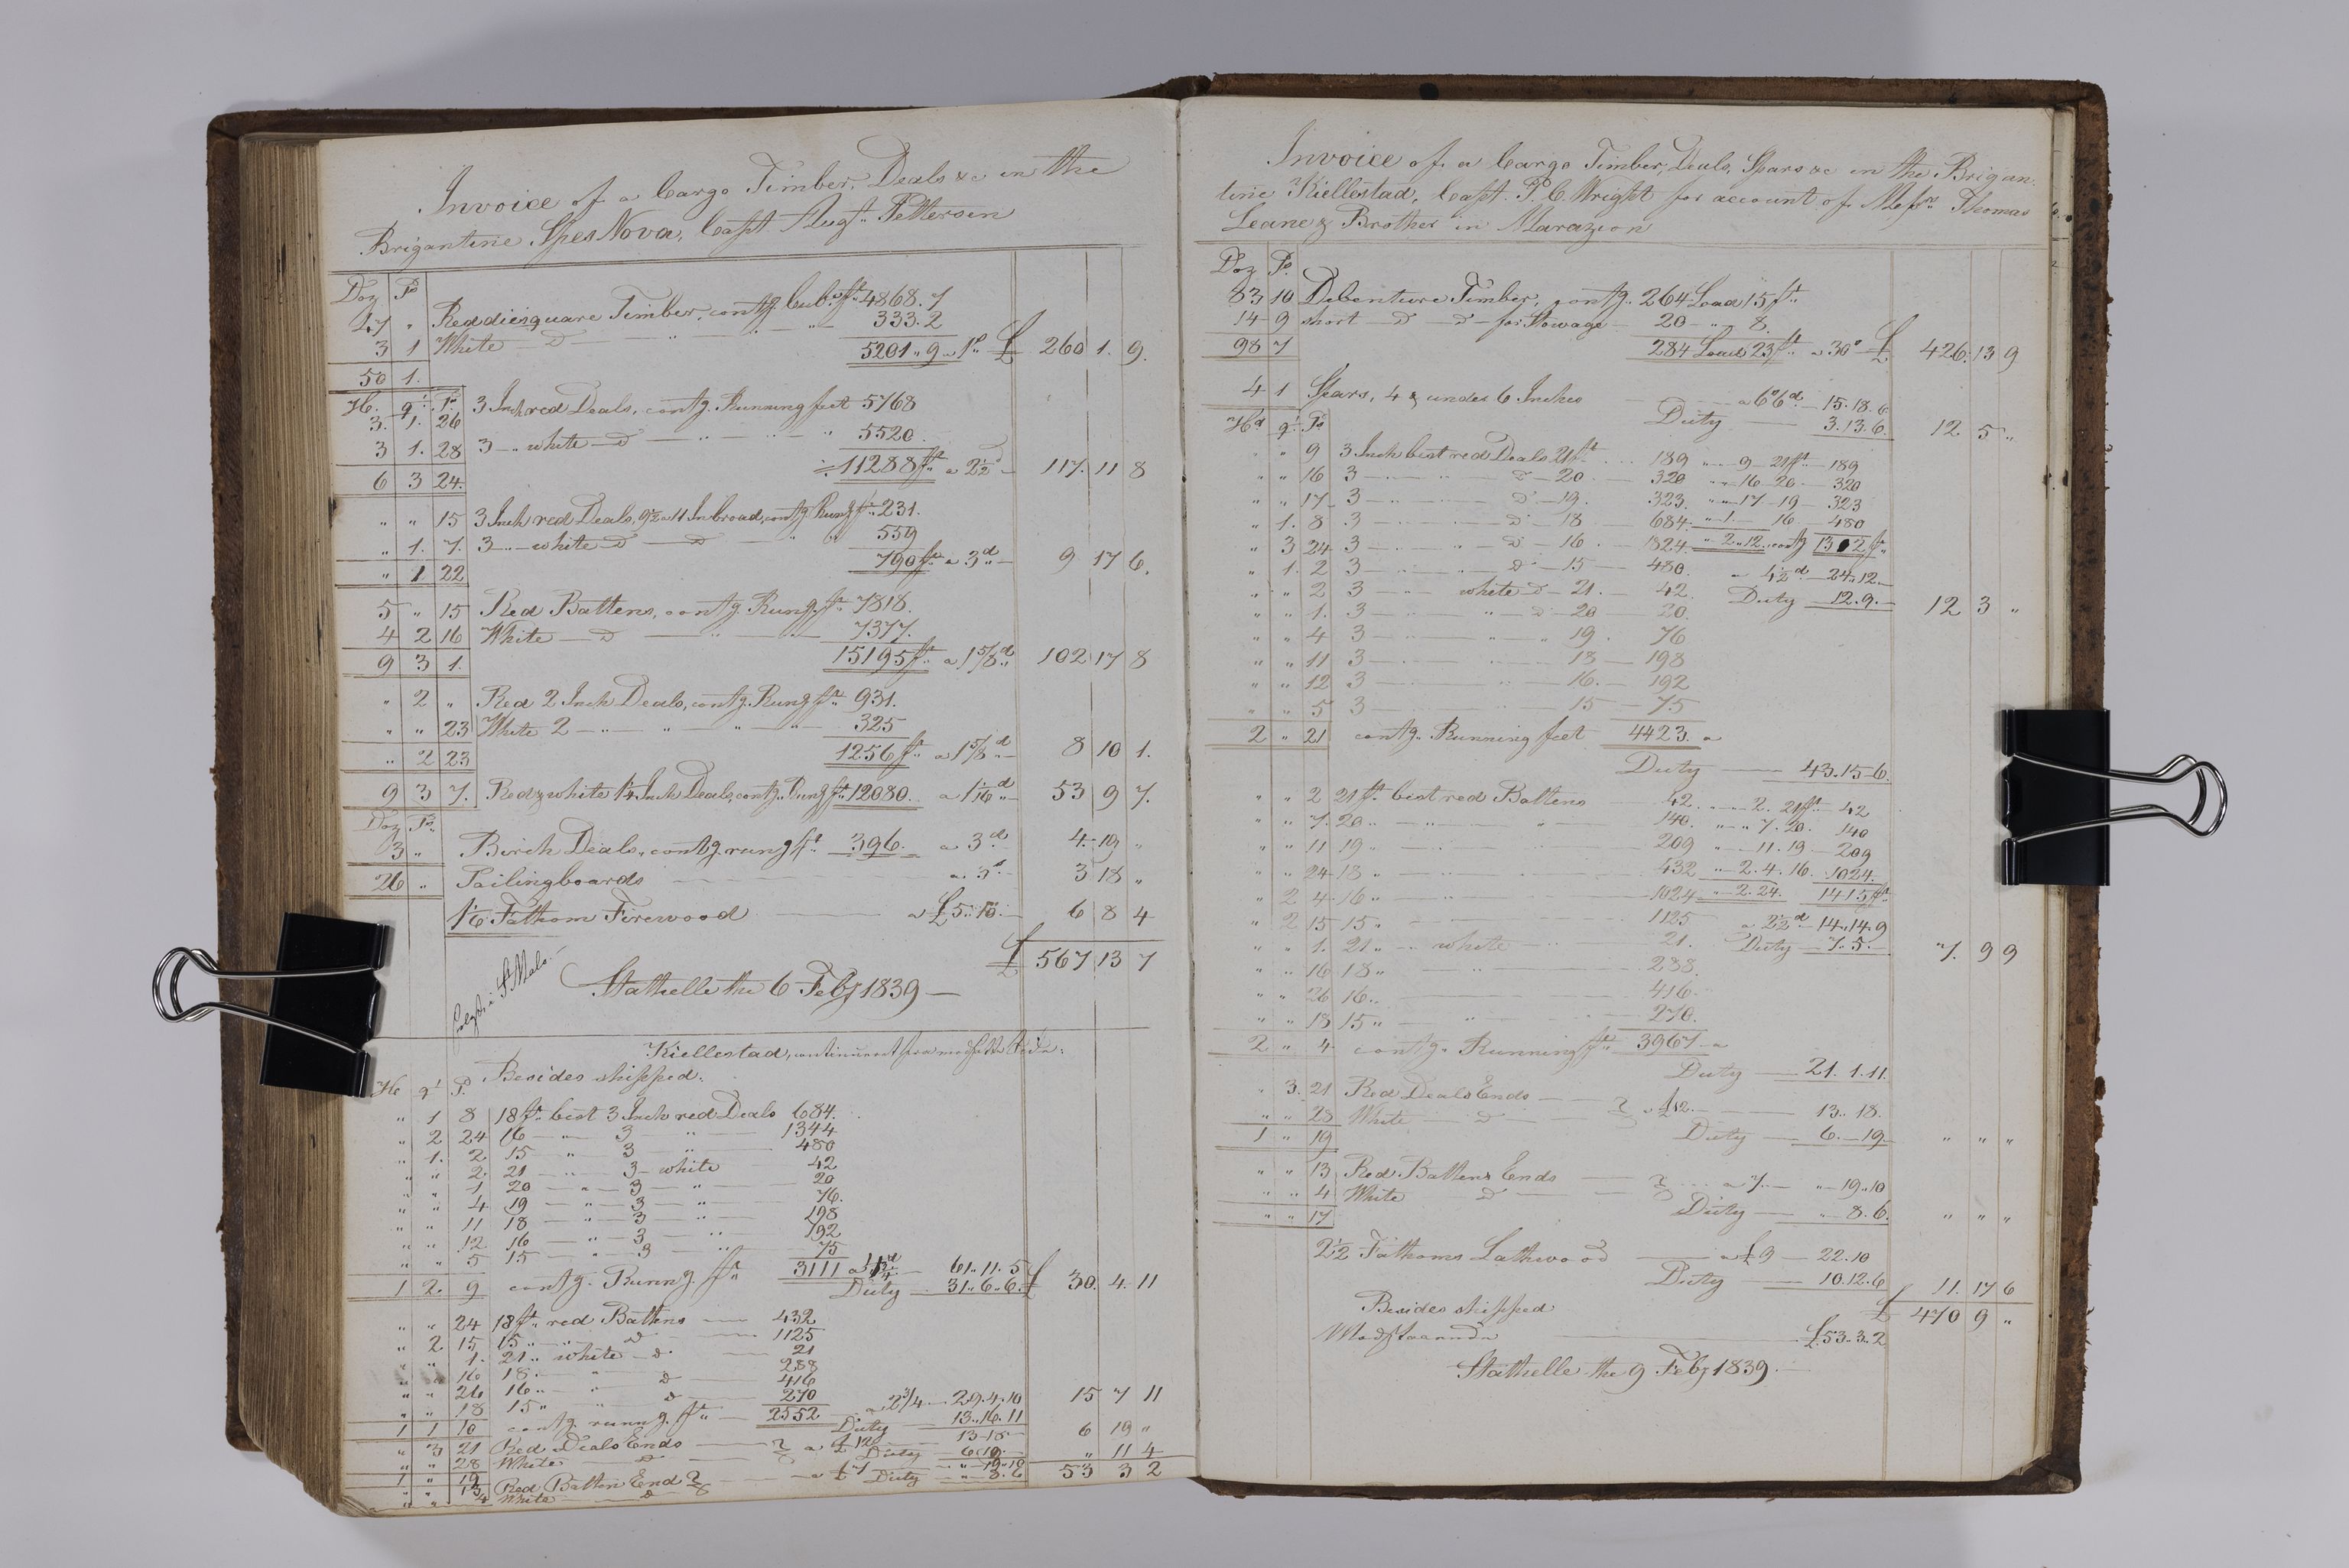 Invoice of a Cargo Timber, Deals &c in the
Brigantine Spes Nova, Capt. Augst. Pettersen
Doz Ps
47 " Red diesquare Timber, contg. Cub. ft 4868.7
3 1 White — d — " — " — 333.2
50 1. 5201 " 9 a 1s £ 260 1. 9.
H. qr. Ps.
3. 1. 26 3 Inch red Deals, contg. Running feet 5768
3 1. 28 3 — " white — d — " — " — " 5520
6 3 24. 11288 ft a 2½d — 117. 11 8
" " 15 3 Inch red Deals, 9½ a 11 In broad, contg. Rung ft. 231.
" 1. 7. 3 — " — white — d — d — " " 559
" 1 22 790 ft a 3d — 9 17 6.
5 " 15 Red Battens, contg. Rung. ft 7818.
4 2 16 White — d — " — " — 7377.
9 3 1. 15195 ft a 1⅝d " 102 17 8
" 2 " Red 2 Inch Deals, contg. Rung ft 931.
" " 23 White 2 — " — " — " — " — 325
" 2 23 1256 ft a 1⅝d — 8 10 1.
9 3 7. Red & white 1¼ Inch Deals, contg. Rung ft. 12080. a 1 1/16d " 53 9 7.
Doz Ps.
3 " Birch Deals, contg. rung ft 396. a 3d — 4 19 "
26 " Pailingboards a. 3s — 3 18 "
1⅙ Fathom Firewood — a £5. 10. — 6 8 4
£ 567 13 7
St Malo.
Stathelle the 6 Feby 1839 —
Kiellestad, continueret fra modsatte Side:
Hd qr P. Besides shipped:
" 1 8 18 ft. best 3 Inch red Deals 684.
" 2 24 16 — " — 3 — " — 1344
" 1. 2 15 — " 3 — " — 480
" " 2. 21 — " — 3 — white — 42
" " 1 20 — " — 3 — " — 20
" " 4 19 — " — 3 — " — 76.
" " 11 18 — " — 3 — " — 198
" " 12 16 — " — 3 — " — 192
" " 5 15 — " — 3 — " — 75
1 2. 9 contg. Runng. ft 3111 a 61. 11. 5
Duty — 31. 6. 6. £ 30. 4. 11
" " 24 18 ft. red Battens — 432
" 2 15 15 " — " — d — 1125
" " 1. 21 " white — d — 21
" " 16 18. — " — d — 288
" " 26 16 " — " — d — 416
" " 18 15 " — " — d — 270
1 1 10 contg. runng. ft — 2552 a 2¾ — 29. 4. 10 15 7 11
Duty — 13. 16. 11
" 3 21 Red Deals Ends — a £12 — 13 - 18 — 6 19 "
" " 28 White — d — Duty — 6. 19. —
1 " 19
" " 13 Red Batten End a £7 — " 19. 10 " 11 4
" " 4 White — d — Duty — " 8. 6 53 3 2
Invoice of a Cargo Timber, Deals, Spars &c in the Brigan-
tine Kiellestad, Capt. P. C. Wright for account of Messrs. Thomas
Leane & Brother in Marazion
Doz Ps.
83 10 Debenture Timber, contg. 264 Load 15 ft.
14 9 short — d — d — for Stowage — 20 — " — 8.
98 7 284 Load 23 ft a 30s £ 426. 13 9
4 1 Spars, 4 & under 6 Inches — a 6s6d — 15. 18. 6
Duty — 3. 13. 6. 12 5 "
Hd qr. Ps
" " 9 3 Inch best red Deals 21 ft — 189 " — " 9 — 21 ft — 189
" " 16 3 — " — d — 20 — 320 " — " 16 - 20 — 320
" " 17 3 — " — d — 19. 323. " — " 17 — 19 — 323
" 1. 8 3 — " — d — 18 684. " — 1. — 16 — 480
" 3 24 3 — " — " — d — 16 — 1824. " 2 " 12 contg 1312 ft
" 1. 2 3 — " — " — d — 15 — 480. a 4½d — 24. 12. —
" " 2 3 — " white d — 21. — 42. Duty — 12. 9. — 12 3 "
" " 1. 3 — " — " — d — 20 20.
" " 4 3 — " — " — " 19. 76
" " 11 3 — " — " — 18 — 198
" " 12 3 — " — " — 16. — 192
" " 5 3 — 15 — 75
2 " 21 contg. Running feet 4423. a
Duty — 43. 15 - 6.
" " 2 21 ft. best red Battens 42. " — " 2. 21 ft — 42
" " 7. 20 " — " — " 140. " — " 7. 20. 140
" " 11 19 " — " 209 " — 11. 19 — 209
" " 24 18 " — 432 " — 2. 4. 16. 1024.
" 2 4. 16 " — 1024 " — 2. 24. 1415 ft
" 2 15 15 " — 1125 a 2½d 14. 14. 9
" " 1. 21 " — white — " 21. Duty — 7. 5. — 7. 9 9
" " 16 18 " — " — 288.
" " 26 16 " — 416.
" " 18 15 " — " — 270.
2 " 4. contg. Running ft 3967 a
Duty — 21. 1. 11.
" 3. 21 Red Deals Ends — a £12. — 13. 18.
" " 28 White — d —
1 " 19 Duty — 6. — 19. " " "
" " 13 Red Battens Ends — a 7. — " — 19. 10
" " 4 White d
" " 17 Duty — " — 8. 6. " " "
2½ Fathoms Lathwood — a £9 — 22. 10
Duty — 10. 12. 6 11. 17 6
Besides shipped £ 470 9 "
Modstaaende — £53. 3. 2
Stathelle the 9 Feby 1839.